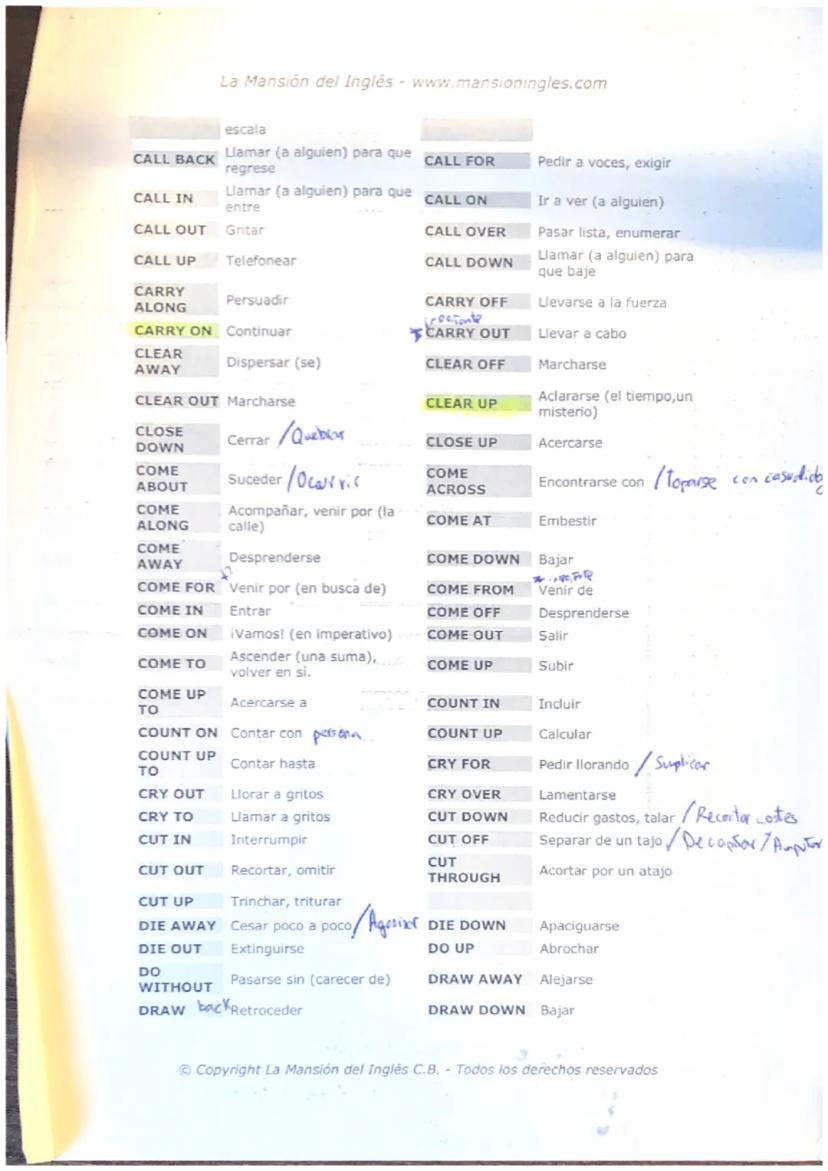 La Mansión del Inglés - www.mansioningles.com
escala
CALL BACK Llamar (a alguien) para que regrese CALL FOR Pedir a voces, exigir
CALL IN Llamar (a alguien) para que entre CALL ON Ir a ver (a alguien)
CALL OUT Gritar CALL OVER Pasar lista, enumerar
CALL UP Telefonear CALL DOWN Llamar (a alguien) para que baje
CARRY ALONG Persuadir CARRY OFF Llevarse a la fuerza
CARRY ON Continuar CARRY OUT Llevar a cabo
CLEAR AWAY Dispersar (se) CLEAR OFF Marcharse
CLEAR OUT Marcharse CLEAR UP Aclararse (el tiempo,un misterio)
CLOSE DOWN Cerrar /Quebrar CLOSE UP Acercarse
COME ABOUT Suceder /Ocurrir COME ACROSS Encontrarse con /Toparse con casualidad
COME ALONG Acompañar, venir por (la calle) COME AT Embestir
COME AWAY Desprenderse COME DOWN Bajar
COME FOR Venir por (en busca de) COME FROM Venir de
COME IN Entrar COME OFF Desprenderse
COME ON ¡Vamos! (en imperativo) COME OUT Salir
COME TO Ascender (una suma), volver en sí. COME UP Subir
COME UP TO Acercarse a COUNT IN Incluir
COUNT ON Contar con persona COUNT UP Calcular
COUNT UP TO Contar hasta CRY FOR Pedir llorando / Suplicar
CRY OUT Llorar a gritos CRY OVER Lamentarse
CRY TO Llamar a gritos CUT DOWN Reducir gastos, talar / Recortar costes
CUT IN Interrumpir CUT OFF Separar de un tajo / Decapitar / Amputar
CUT OUT Recortar, omitir CUT THROUGH Acortar por un atajo
CUT UP Trinchar, triturar
DIE AWAY Cesar poco a poco / DIE DOWN Apaciguarse
DIE OUT Extinguirse DO UP Abrochar
DO WITHOUT Pasarse sin (carecer de) DRAW AWAY Alejarse
DRAW back Retroceder DRAW DOWN Bajar
© Copyright La Mansión del Inglés C.B. - Todos los derechos reservados